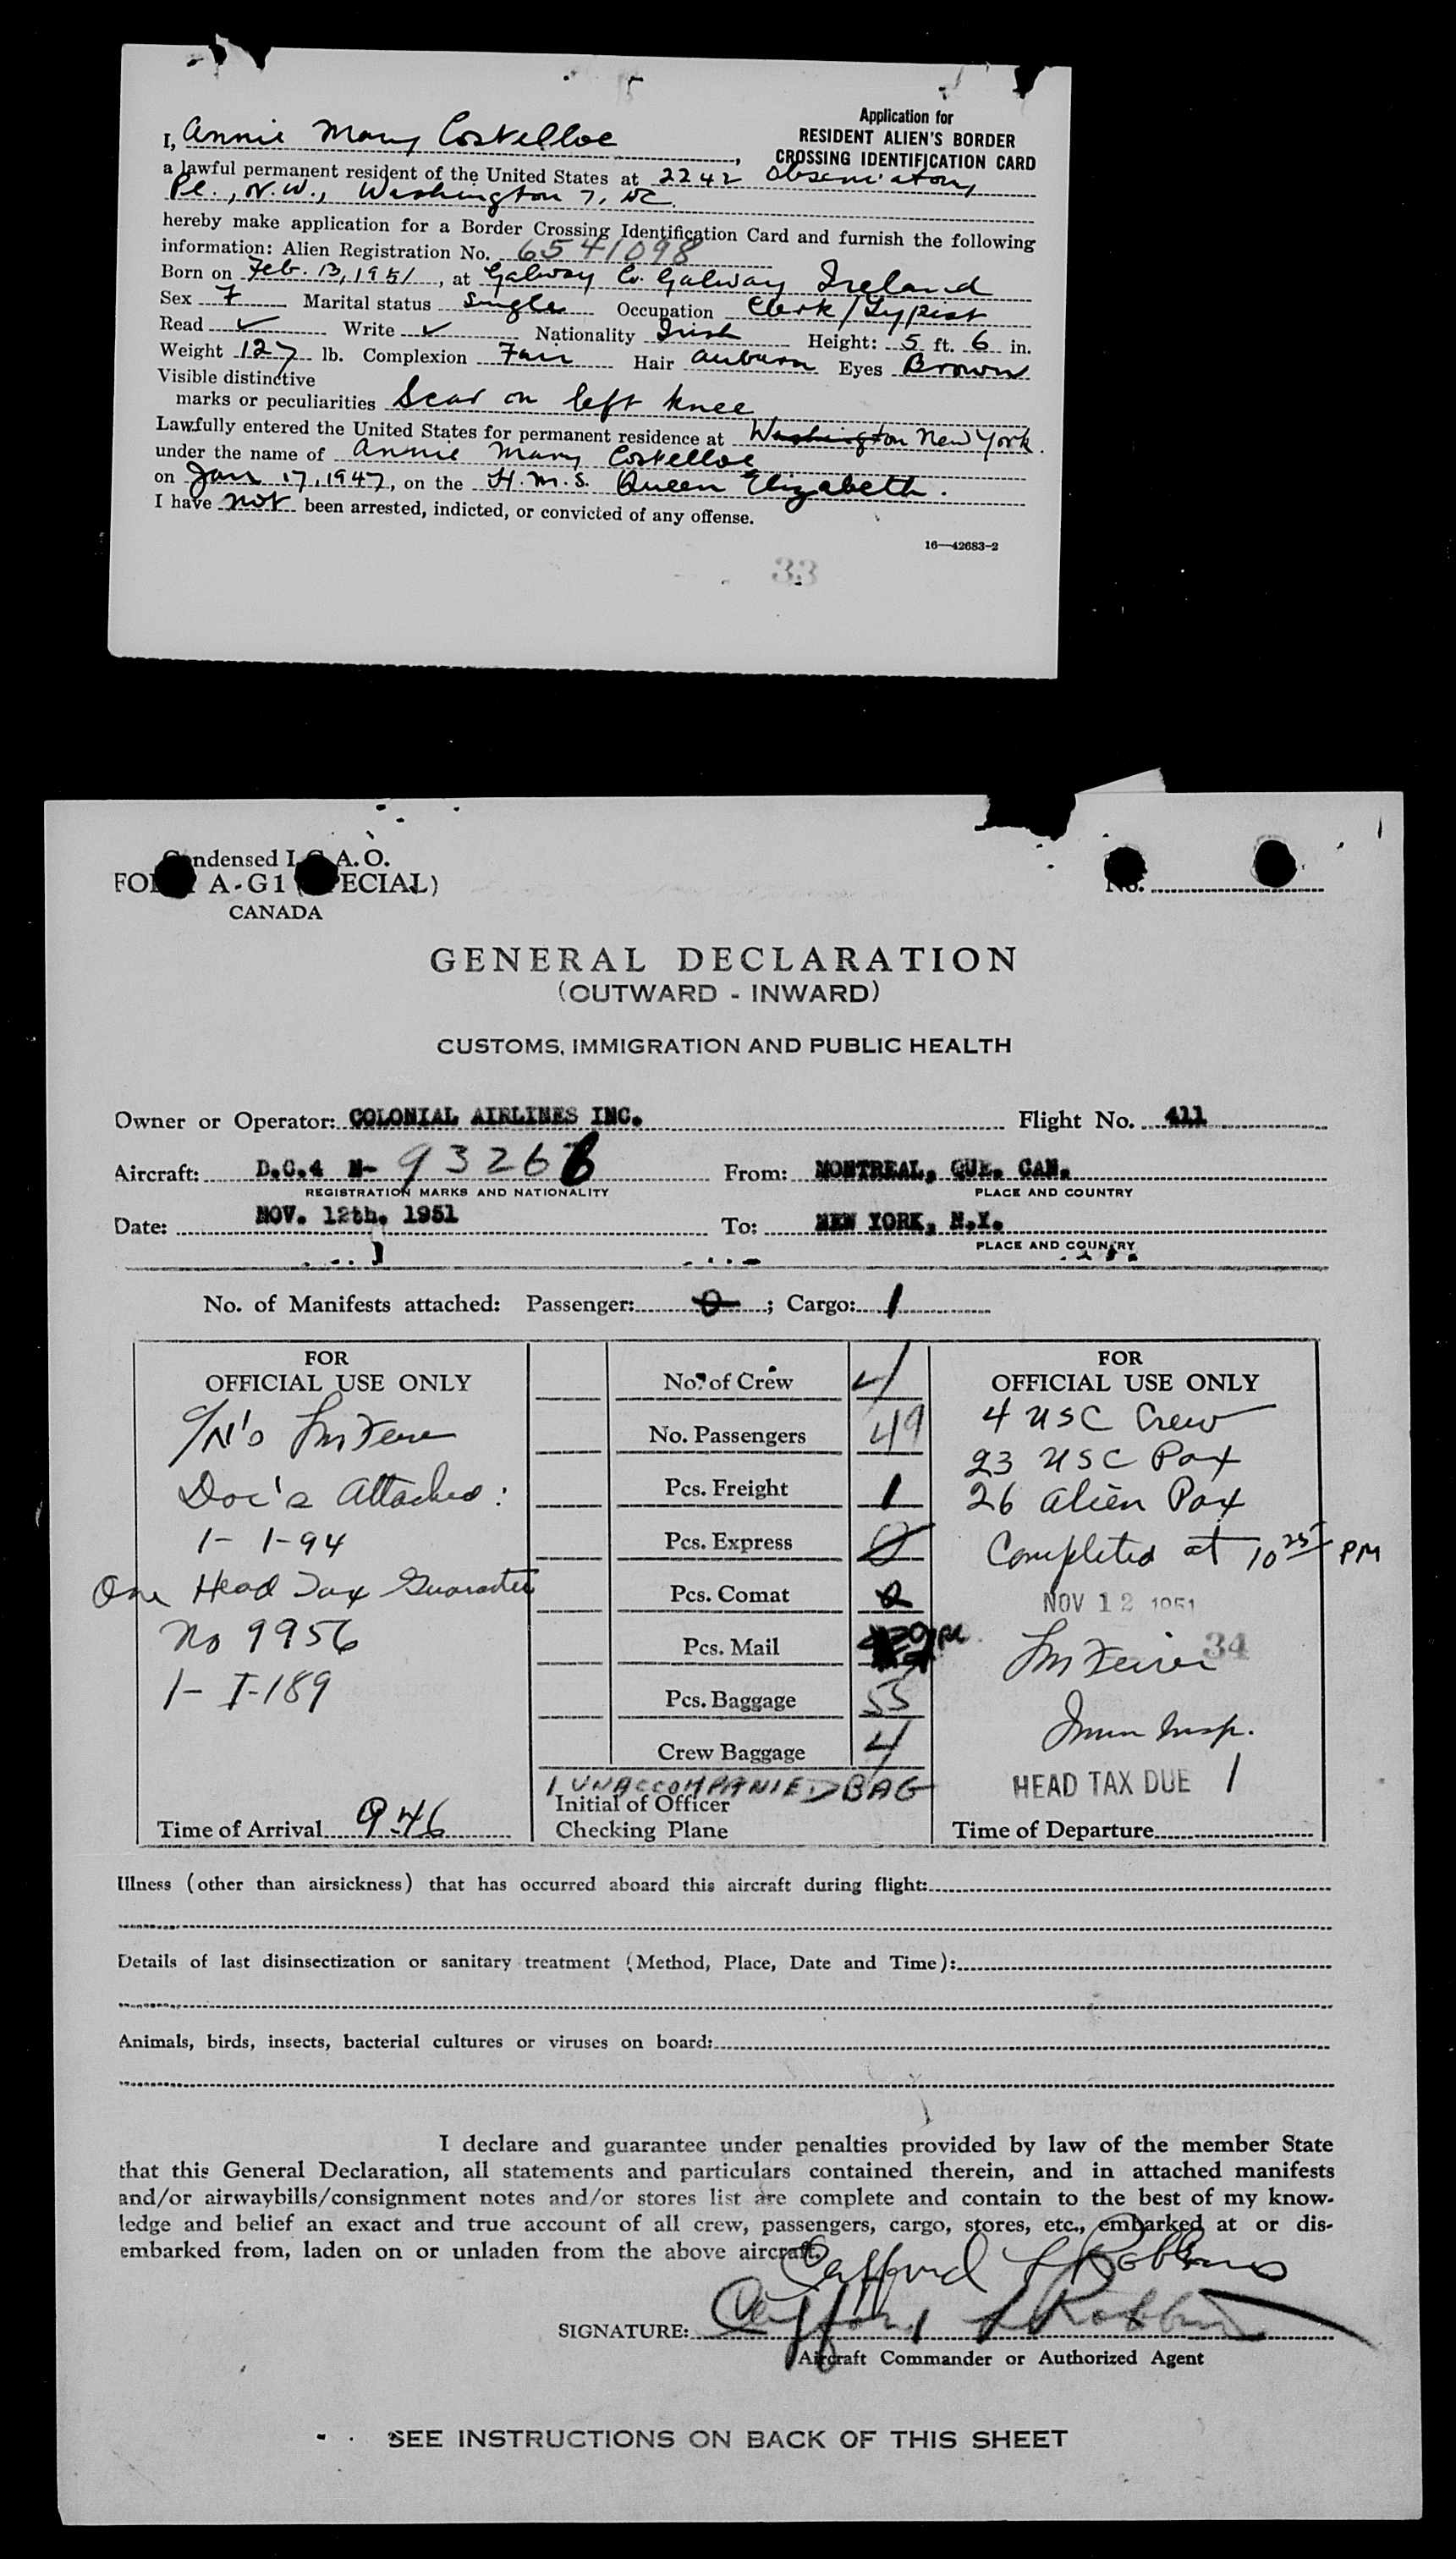 Application for
RESIDENT ALIEN'S BORDER
CROSSING IDENTIFICATION CARD
I, Annie Mary Costelloe,
a lawful permanent resident of the United States at 2242 Observatory
Pl., N.W., Washington 7, DC.
hereby make application for a Border Crossing Identification Card and furnish the following
information: Alien Registration No. 6541098
Born on Feb. 13, 1951, at Galway Co. Galway Ireland
Sex F Marital status Single Occupation Clerk/Typist
Read ✓ Write ✓ Nationality Irish Height: 5 ft. 6 in.
Weight 127 lb. Complexion Fair Hair auburn Eyes Brown
Visible distinctive
marks or peculiarities Scar on left knee
Lawfully entered the United States for permanent residence at Washington New York.
under the name of Annie Mary Costelloe
on Jan 17, 1947, on the H.M.S. Queen Elizabeth.
I have not been arrested, indicted, or convicted of any offense.
16—42683-2
33
Condensed I.C.A.O.
FORM A-G1 (SPECIAL)
CANADA
No.
GENERAL DECLARATION
(OUTWARD - INWARD)
CUSTOMS, IMMIGRATION AND PUBLIC HEALTH
Owner or Operator: COLONIAL AIRLINES INC. Flight No. 411
Aircraft: D.C.4 N- 93266 From: MONTREAL, QUE. CAN.
REGISTRATION MARKS AND NATIONALITY PLACE AND COUNTRY
Date: NOV. 12th. 1951 To: NEW YORK, N.Y.
PLACE AND COUNTRY
No. of Manifests attached: Passenger: 0; Cargo: 1
FOR
OFFICIAL USE ONLY
Doc's attached:
1- 1-94
One Head Tax Guarantee
No 9956
1- I-189
Time of Arrival 9:46
No. of Crew 4
No. Passengers 49
Pcs. Freight 1
Pcs. Express 0
Pcs. Comat
Pcs. Mail
Pcs. Baggage 53
Crew Baggage 4
1 UNACCOMPANIED BAG
Initial of Officer
Checking Plane
FOR
OFFICIAL USE ONLY
4 USC Crew
23 USC Pax
26 alien Pax
Completed at 10 25 PM
NOV 12 1951
34
Imm Insp.
HEAD TAX DUE 1
Time of Departure
Illness (other than airsickness) that has occurred aboard this aircraft during flight:
Details of last disinsectization or sanitary treatment (Method, Place, Date and Time):
Animals, birds, insects, bacterial cultures or viruses on board:
I declare and guarantee under penalties provided by law of the member State
that this General Declaration, all statements and particulars contained therein, and in attached manifests
and/or airwaybills/consignment notes and/or stores list are complete and contain to the best of my know-
ledge and belief an exact and true account of all crew, passengers, cargo, stores, etc., embarked at or dis-
embarked from, laden on or unladen from the above aircraft.
SIGNATURE:
Aircraft Commander or Authorized Agent
SEE INSTRUCTIONS ON BACK OF THIS SHEET